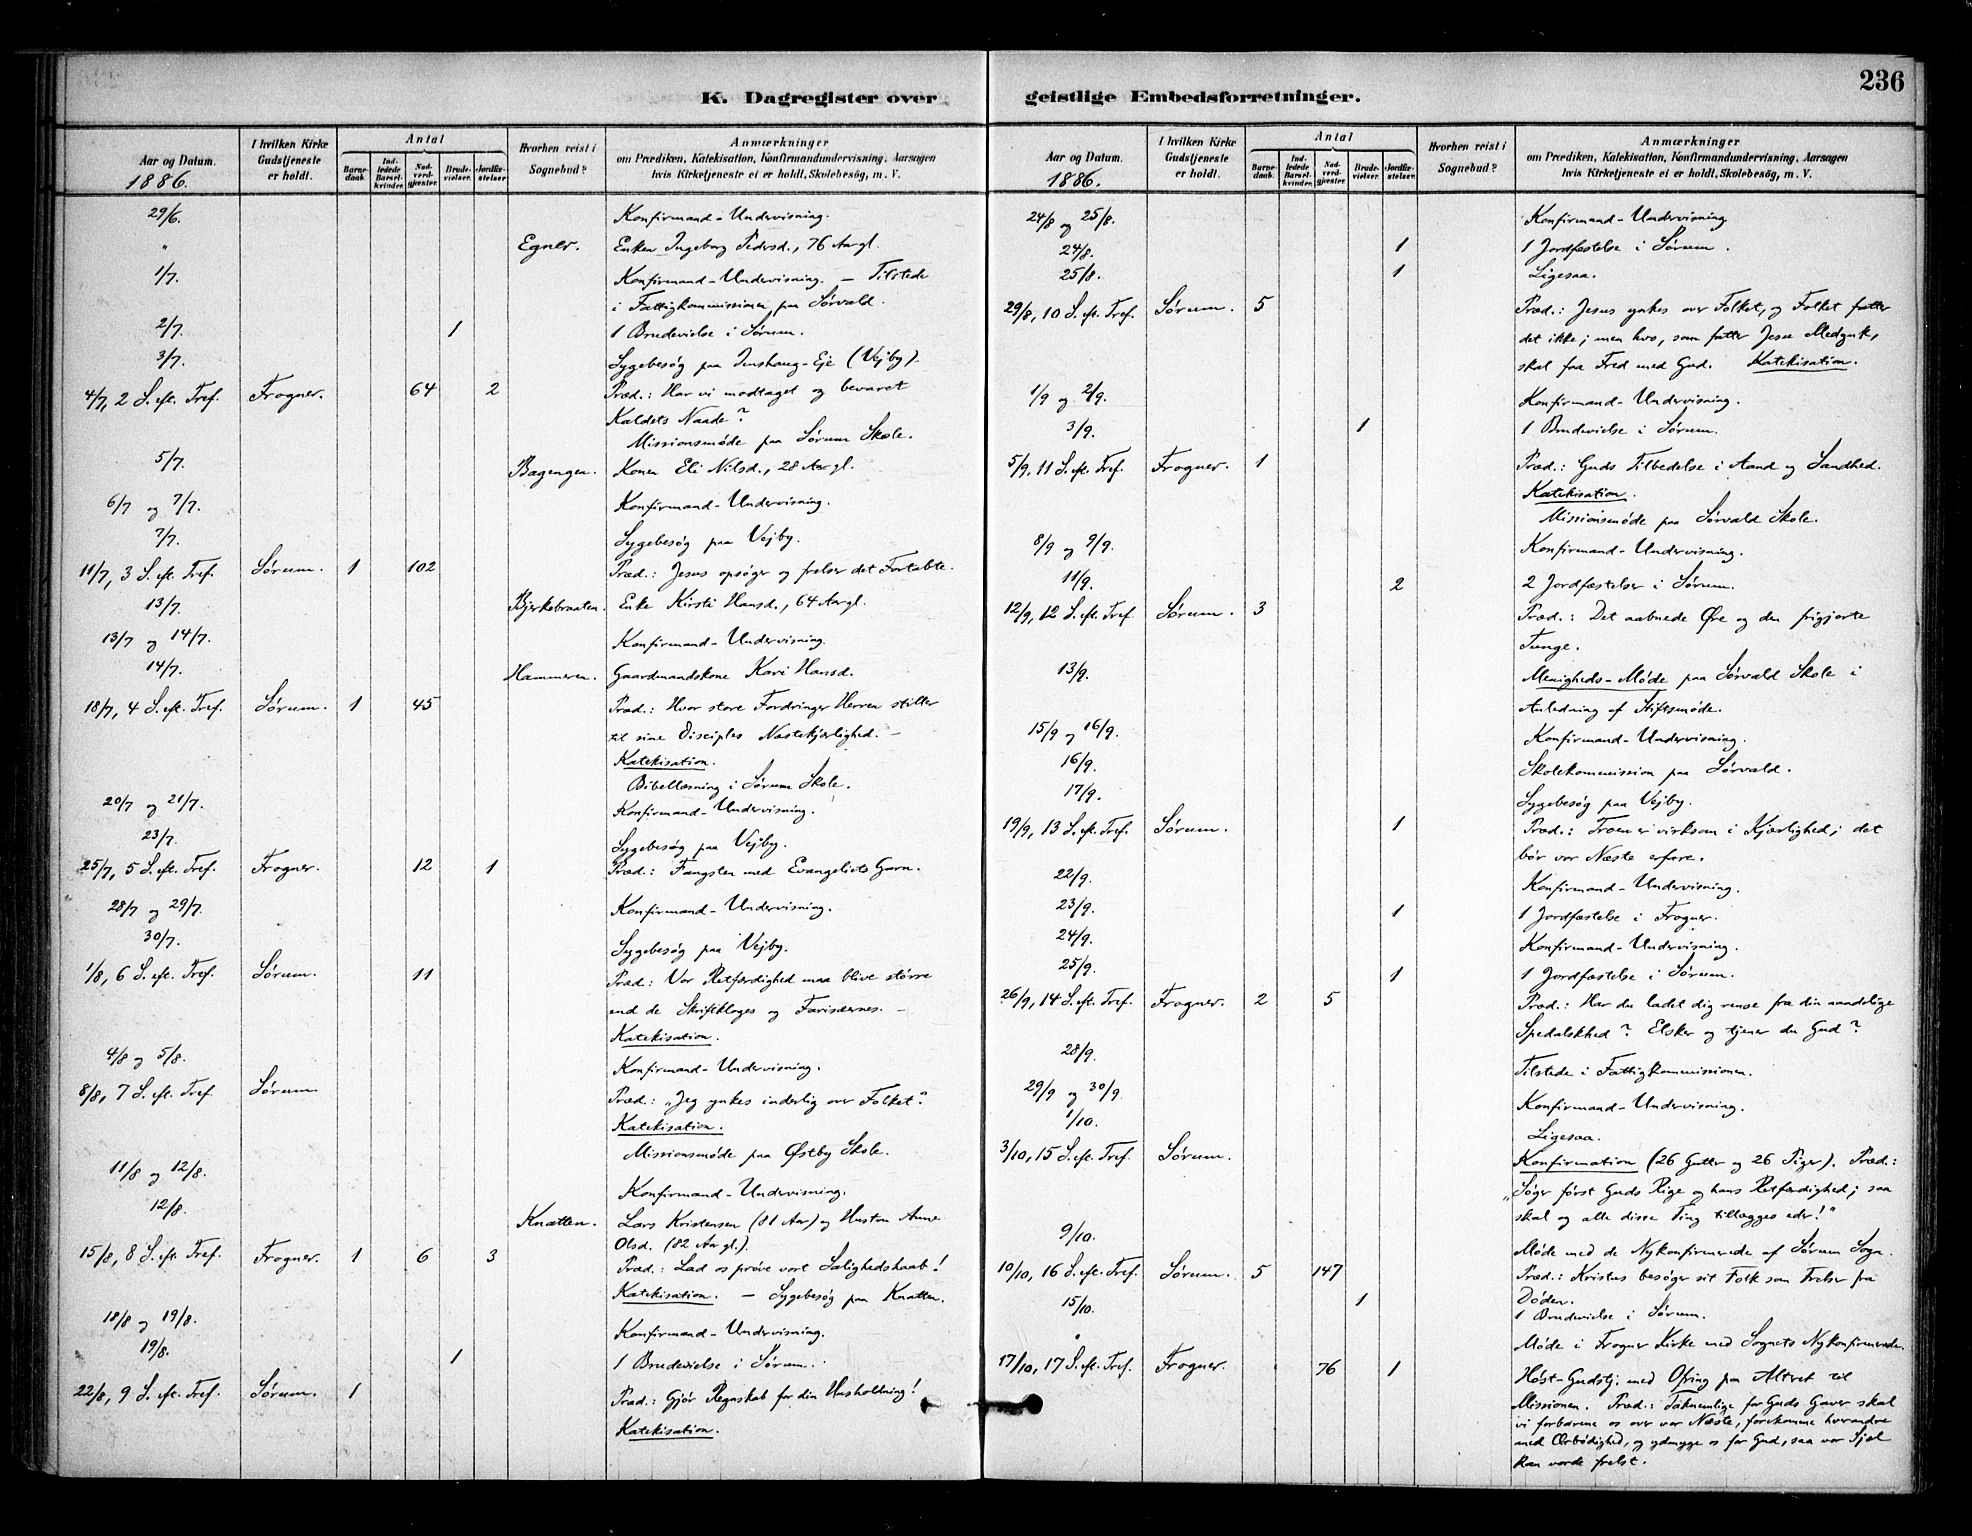 236
K. Dagregister over geistlige Embedsforretninger.
Aar og Datum. 1886.
I hvilken Kirke Gudstjeneste er holdt.
Antal
Barnedaab. Indledede Barselkvinder. Nadverdgjæster. Brudevielser. Jordfæstelser.
Hvorhen reist i Sognebud?
Anmærkninger
om Prædiken, Katekisation, Konfirmandundervisning, Aarsagen
hvis Kirketjeneste ei er holdt, Skolebesøg, m. V.
29/6. Konfirmand-Undervisning.
" Egner. Enken Ingeborg Pedersd., 76 Aar gl.
1/7. Konfirmand-Undervisning. — Tilstede
i Fattigkommissionen paa Sørvald.
2/7. 1 1 Brudevielse i Sørum.
3/7. Sygebesøg paa Jenshaug-Eje (Vejby).
4/7, 2 S. eft. Tref. Frogner. 64 2 Præd.: Har vi modtaget og bevaret
Kaldets Naade?
Missionsmøde paa Sørum Skole.
5/7. Bagengen. Konen Eli Nilsd., 28 Aar gl.
6/7 og 7/7. Konfirmand-Undervisning.
7/7. Sygebesøg paa Vejby.
11/7, 3 S. eft. Tref. Sørum. 1 102 Præd.: Jesus opsøger og frelser det Fortabte.
13/7. Bjerkebraaten. Enke Kirsti Hansd., 64 Aar gl.
13/7 og 14/7. Konfirmand-Undervisning.
14/7. Hammeren. Gaardmandskone Kari Hansd.
18/7, 4 S. eft. Tref. Sørum. 1 45 Præd.: Hvor store Fordringer Herren stiller
til sine Disciples Næstekjærlighed. —
Katekisation.
Bibellæsning i Sørum Skole.
20/7 og 21/7. Konfirmand-Undervisning.
23/7. Sygebesøg paa Vejby.
25/7, 5 S. eft. Tref. Frogner. 12 1 Præd.: Fangsten med Evangeliets Garn.
28/7 og 29/7. Konfirmand-Undervisning.
30/7. Sygebesøg paa Vejby.
1/8, 6 S. eft. Tref. Sørum. 11 Præd.: Vor Retfærdighed maa blive større
end de Skriftkloges og Farisæernes. —
Katekisation.
4/8 og 5/8. Konfirmand-Undervisning.
8/8, 7 S. eft. Tref. Sørum Præd.: „Jeg ynkes inderlig over Folket".
Katekisation.
Missionsmøde paa Østby Skole.
11/8 og 12/8. Konfirmand-Undervisning.
12/8. Knatten. Lars Kristensen (81 Aar) og Hustru Anne
Olsd. (82 Aar gl.).
15/8, 8 S. eft. Tref. Frogner. 1 6 3 Præd.: Lad os prøve vort Salighedshaab!
Katekisation. — Sygebesøg paa Knatten.
18/8 og 19/8. Konfirmand-Undervisning.
19/8. 1 1 Brudevielse i Sørum.
22/8, 9 S. eft. Tref. Sørum. 1 Præd.: Gjør Regnskab for din Husholdning!
Katekisation.
Aar og Datum. 1886.
I hvilken Kirke Gudstjeneste er holdt.
Antal
Barnedaab. Indledede Barselkvinder. Nadverdgjæster. Brudevielser. Jordfæstelser.
Hvorhen reist i Sognebud?
Anmærkninger
om Prædiken, Katekisation, Konfirmandundervisning, Aarsagen
hvis Kirketjeneste ei er holdt, Skolebesøg, m. V.
24/8 og 25/8. Konfirmand-Undervisning
24/8. 1 1 Jordfæstelse i Sørum.
25/8. 1 Ligesaa.
29/8, 10 S. eft. Tref. Sørum. 5 Præd.: Jesus ynkes over Folket, og Folket fatter
det ikke; men hvo, som fatter Jesu Medynk,
skal faa Fred med Gud. Katekisation.
1/9 og 2/9. Konfirmand-Undervisning.
3/9. 1 1 Brudevielse i Sørum.
5/9. 11 S. eft. Tref. Frogner. 1 Præd.: Guds Tilbedelse i Aand og Sandhed.
Katekisation.
Missionsmøde paa Sørvald Skole.
8/9 og 9/9. Konfirmand-Undervisning.
11/9. 2 2 Jordfæstelser i Sørum.
12/9, 12 S. eft. Tref. Sørum. 3 Præd.: Det aabnede Øre og den frigjorte
Tunge.
13/9. Menigheds-Møde paa Sørvald Skole i
Anledning af Stiftsmøde.
15/9 og 16/9. Konfirmand-Undervisning.
16/9. Skolekommission paa Sørvald.
17/9. Sygebesøg paa Vejby.
19/9, 13 S. eft. Tref. Sørum. 1 Præd.: Troen er virksom i Kjærlighed; det
bør vor Næste erfare.
22/9. Konfirmand-Undervisning.
23/9. 1 1 Jordfæstelse i Frogner.
24/9. Konfirmand-Undervisning.
25/9. 1 1 Jordfæstelse i Sørum.
26/9, 14 S. eft. Tref. Frogner. 2 5 Præd.: Har du ladet dig rense fra din aandelige
Spedalskhed? Elsker og tjener du Gud?
28/9. Tilstede i Fattigkommissionen.
29/9 og 30/9. Konfirmand-Undervisning.
1/10. Ligesaa.
3/10, 15 S. eft. Tref. Sørum. Konfirmation (26 Gutter og 26 Piger). Præd.:
„Søger først Guds Rige og hans Retfærdighed; saa
skal og alle disse Ting tillægges eder!"
9/10. Møde med de Nykonfirmerede af Sørum Sogn.
10/10, 16 S. eft. Tref. Sørum. 5 147 Præd.: Kristus besøger sit Folk som Frelser fra
Døden.
15/10. 1 1 Brudevielse i Sørum.
" Møde i Frogner Kirke med Sognets Nykonfirmerede.
17/10, 17 S. eft. Tref. Frogner. 76 1 Høst-Gudstj. med Ofring paa Altret til
Missionen. Præd.: Taknemlige for Guds Gaver skal
vi forbarme os over vor Næste, forekomme hverandre
med Ærbødighed, og ydmyge os for Gud, saa vor Sjæl
kan vorde frelst.